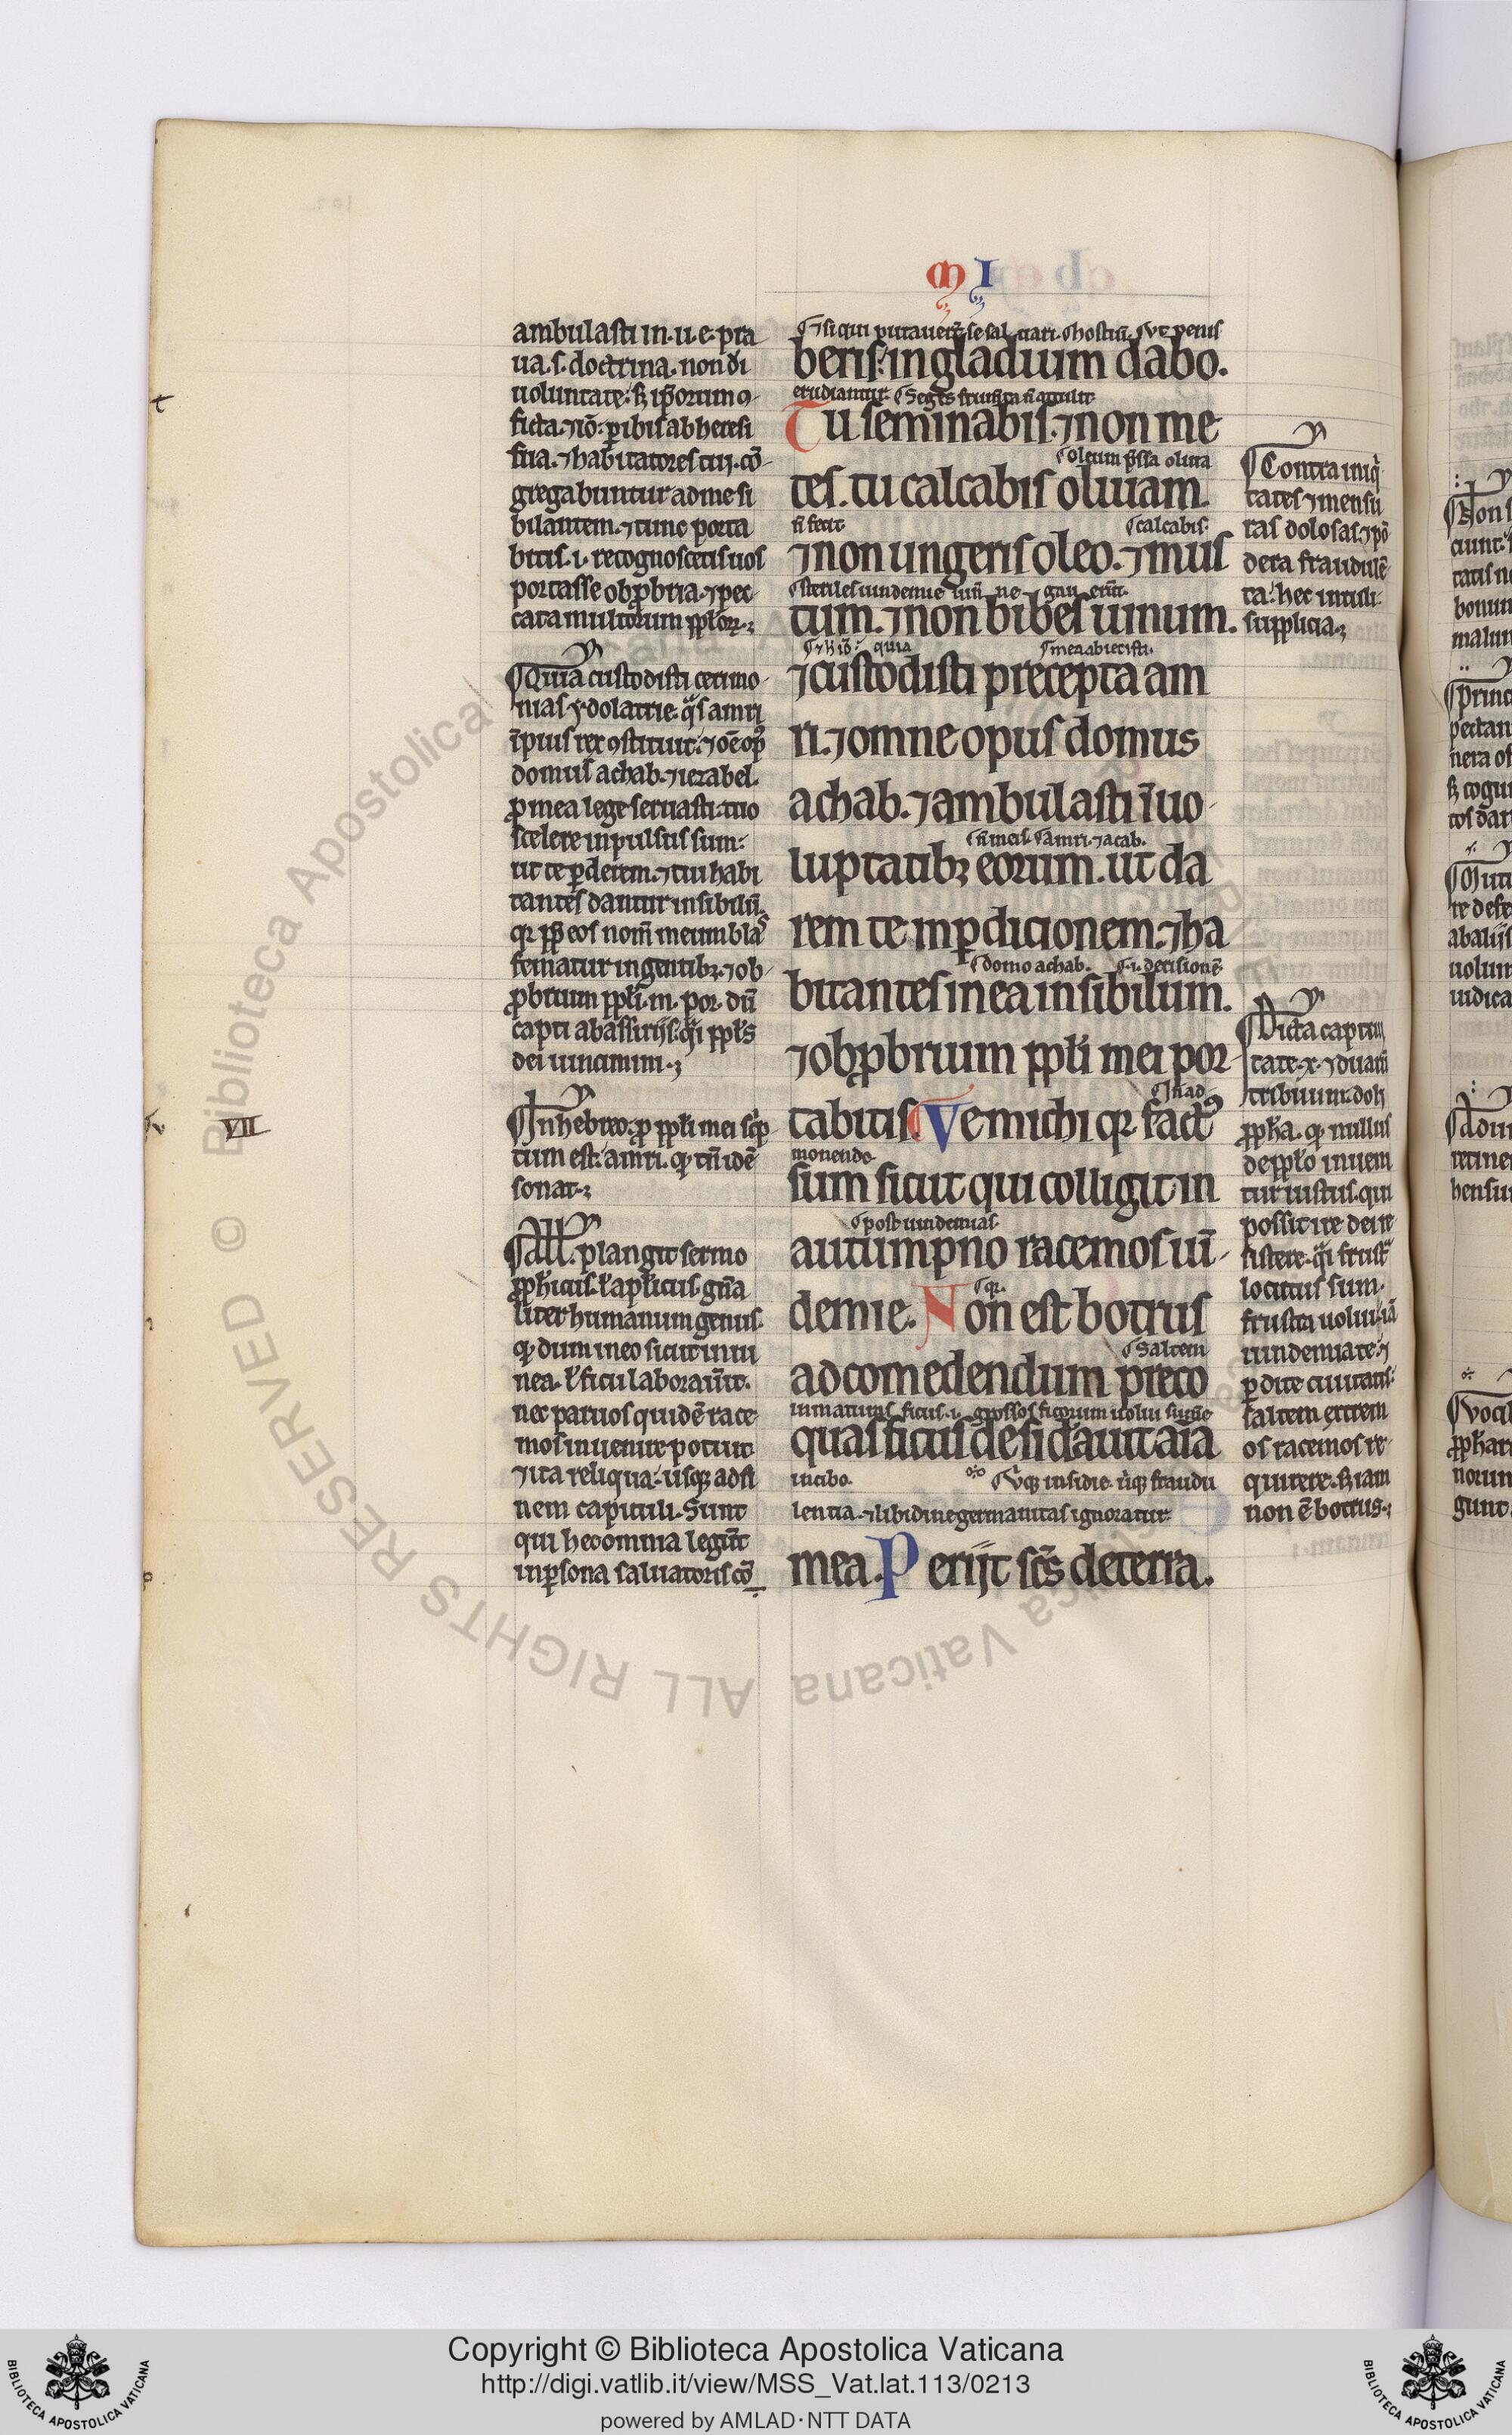 MI
ambulasti in. u. e. pra
ua. s. doctrina. non di
uoluntate: sꝫ ip̄orum ꝯ
ficta. ⁊ iō: ꝑibis ab heresi
tua. ⁊ habitatores tui. cō
gregabuntur ad me si
bilantem. ⁊ tunc porta
bitis. i. recognoscetis uos
portasse obꝓbria. ⁊ pec
cata multorum pplorꝝ.
Quia custodisti cerimo
nias ydolatrie. q̄s amri
īpius rex ꝯstituit: ⁊ oē opꝰ
domus achab. ⁊ iezabel.
ꝓ mea lege seruasti: tuo
scelere inpulsus sum:
ut te ꝑderem. ⁊ tui habi
tantes dantur in sibilū.
qꝛ ꝓpt̄ eos nom̄ meum blas
fematur in gentibꝫ. ⁊ ob
ꝓbrium ppl̄i. m. por. dū
capti ab assiriis. q̄i ppl̄s
dei uincimini.
VII
In hebreo. ꝓ ppl̄i mei sc̄p
tum est. amri. qđ tn̄ idē
sonat.
All. plangit sermo
ꝓph̄icus. ł apl̄icus. gn̄a
liter humanum genus.
qđ dum in eo sicut in ui
nea. ł ficu laborau̅it.
nec paruos quidē race
mos inuenire potuit
⁊ ita reliqua. usqꝫ ad fi
nem capituli. Sunt
qui hec omnia legūt
in ꝑsona saluatoris cō
⁊ si qui putauer̄t se sal uari. hostiū. ut penis
beris: in gladium dabo.
erudiantur. Seges frum̄ta n̄ attulit
Tu seminabis. ⁊ non me
oleum p̄ssa oliua
tes. tu calcabis oliuam.
n̄ fecit calcabis.
⁊ non ungeris oleo. ⁊ mus
steriles uindemie uin̄ ne gau erūt.
tum. ⁊ non bibes uinum.
⁊ h̄ iō: quia mea abiecisti.
⁊ custodisti precepta am
ri. ⁊ omne opus domus
achab. ⁊ ambulasti ī uo
n̄ meis. amri. ⁊ acab.
luptatibꝫ eorum. ut da
rem te in ꝑdicionem. ⁊ ha
domo achab. i. derisionē
bitantes in ea in sibilum.
⁊ obꝓbrium ppl̄i mei por
tabitis. Ve michi qꝛ factꝰ
monendo.
sum sicut qui colligit in
post uindemias.
autumpno racemos uī
qꝛ.
demie. Non est botrus
Saltem
ad comedendum preco
inmaturas ficus. i. grossos ficorum uolui sum̄e
quas ficus desid̄auit aīa
in cibo. Vbiqꝫ insidie. ubiqꝫ fraudu
lentia. ⁊ libidine germanitas ignoratur
mea. Perijt sc̄s de terra.
Contra iniq̄
tates ⁊ mensu
ras dolosas. ⁊ pō
dera fraudulē
ta. hec intuli
supplicia.
Dicta captiui
tate. x. ⁊ duarū
tribuum. dol₃
ꝓph̄a. qđ nullus
de ppl̄o inueni
tur iustus. qui
possit ire dei re
sistere. q̄i frust̄
locutus sum.
frustra uolui. iā
uindemiate. ⁊
ꝑdite ciuitatis:
saltem extrem
os racemos re
quirere. sꝫ iam
non ē botrus.
Copyright © Biblioteca Apostolica Vaticana
http://digi.vatlib.it/view/MSS_Vat.lat.113/0213
powered by AMLAD·NTT DATA
BIBLIOTECA APOSTOLICA VATICANA
BIBLIOTECA APOSTOLICA VATICANA
© Biblioteca Apostolica Vaticana ALL RIGHTS RESERVED